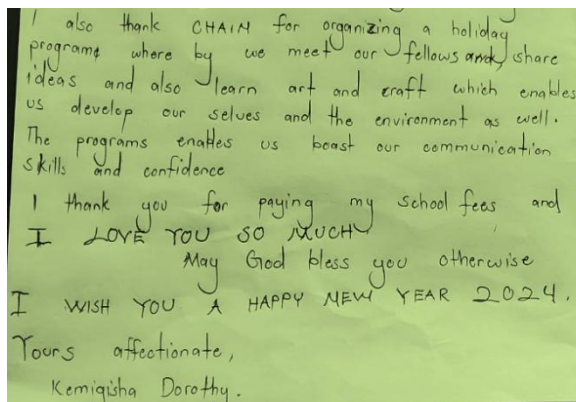 I also thank CHAIN for organizing a holiday
programs where by we meet our fellows and, share
ideas and also learn art and craft which enables
us develop our selves and the environment as well.
The programs enables us boast our communication
skills and confidence
I thank you for paying my school fees and
I LOVE YOU SO MUCH
May God bless you otherwise
I WISH YOU A HAPPY NEW YEAR 2024.
Yours affectionate,
Kemigisha Dorothy.